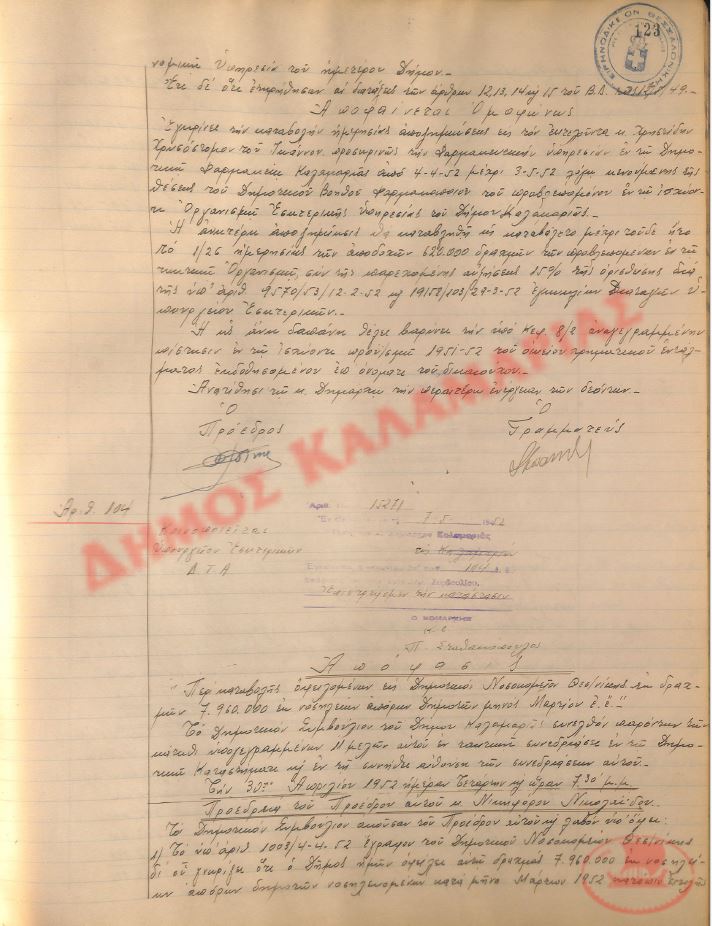 123
ΕΙΡΗΝΟΔΙΚΕΙΟΝ ΘΕΣΣΑΛΟΝΙΚΗΣ
νομικὴ Ὑπηρεσία τοῦ ἡμετέρου Δήμου.
Ἔτι δὲ ὅτι ἐτηρήθησαν αἱ διατάξεις τῶν ἄρθρων 12, 13, 14 καὶ 15 τοῦ Β.Δ.
Ἀποφαίνεται Ὁμοφώνως
Ἐγκρίνει τὴν καταβολὴν ἡμερησίας ἀποζημιώσεως εἰς τὸν ἐκτελοῦντα κ. Χρηστίδην
Χρυσόστομον τοῦ Ἰωάννου προσωρινῶς τὴν Φαρμακευτικὴν ὑπηρεσίαν ἐν τῷ Δημο-
τικῷ Φαρμακείῳ Καλαμαριᾶς ἀπὸ 4-4-52 μέχρι 3-5-52 λόγῳ κενουμένης τῆς
θέσεως τοῦ Δημοτικοῦ Βοηθοῦ Φαρμακοποιοῦ τοῦ προβλεπομένου ἐν τῷ ἰσχύον-
τι Ὀργανισμῷ Ἐσωτερικῆς Ὑπηρεσίας τοῦ Δήμου Καλαμαριᾶς.
Ἡ ἀνωτέρω ἀποζημίωσις θὰ καταβληθῇ ὡς κατεβάλετο μέχρι τοῦδε ἤτοι
τὸ 1/26 ἡμερησίως τῶν ἀποδοχῶν 620.000 δραχμῶν τῶν προβλεπομένων ἐν τῷ
τικῷ Ὀργανισμῷ, σὺν τῆς παρεπομένης αὐξήσεως 15% τῆς ὁρισθείσης διὰ
τῆς ὑπ' ἀριθ. 9570/53/12-2-52 καὶ 19158/103/29-3-52 ἐγκυκλίων Διαταγῶν Ὑ-
πουργείου Ἐσωτερικῶν.
Ἡ ὡς ἄνω δαπάνη θέλει βαρύνει τὴν ὑπὸ Κεφ. 8/2 ἀναγεγραμμένην
πίστωσιν ἐν τῷ ἰσχύοντι προϋ/σμῷ 1951-52 τοῦ οἰκείου χρηματικοῦ ἐντάλ-
ματος ἐκδοθησομένου ἐπ' ὀνόματι τοῦ δικαιούχου.
Ἀνατίθησι τῷ κ. Δημάρχῳ τὴν περαιτέρω ἐνέργειαν τῶν δεόντων.
Ὁ Ὁ
Πρόεδρος Γραμματεὺς
Ἀριθ. 104
Ἀριθ. 15271
7-5- 1952
Κοινοποιεῖται
Ὑπουργεῖον Ἐσωτερικῶν
Δ.Τ.Α
Καλαμαριᾶς
104
Συμβουλίου.
Ο ΝΟΜΑΡΧΗΣ
κ.ε
Π. Σταθακόπουλος
Ἀπόφασις
Περὶ καταβολῆς ὀφειλομένων εἰς Δημοτικὸν Νοσοκομεῖον Θεσ/νίκης ἐκ δραχ-
μῶν 7.960.000 ἐκ νοσηλείων ἀπόρων Δημοτῶν μηνὸς Μαρτίου ἐ.ἔ."
Τὸ Δημοτικὸν Συμβούλιον τοῦ Δήμου Καλαμαριᾶς συνελθὸν παρόντων τῶν
κάτωθι ὑπογεγραμμένων 11 μελῶν αὐτοῦ ἐν τακτικῇ συνεδριάσει ἐν τῷ Δημο-
τικῷ Καταστήματι καὶ ἐν τῇ συνήθει αἰθούσῃ τῶν συνεδριάσεων αὐτοῦ.
Τὴν 30ην Ἀπριλίου 1952 ἡμέραν Τετάρτην καὶ ὥραν 7.30' μ.μ.
Προεδρίᾳ τοῦ Προέδρου αὐτοῦ κ. Νικηφόρου Νικολαΐδου.
Τὸ Δημοτικὸν Συμβούλιον ἀκοῦσαν τοῦ Προέδρου αὐτοῦ καὶ λαβὸν ὑπ' ὄψει:
1) Τὸ ὑπ' ἀριθ 1003/4-4-52 ἔγγραφον τοῦ Δημοτικοῦ Νοσοκομείου Θεσ/νίκης
δι' οὗ γνωρίζει ὅτι ὁ Δῆμος ἡμῶν ὀφείλει αὐτῷ δραχμὰς 7.960.000 ἐκ νοσηλεί-
ων ἀπόρων δημοτῶν νοσηλευομένων κατὰ μῆνα Μάρτιον 1952 κατόπιν ἐντολῆς
ΔΗΜΟΣ ΚΑΛΑΜΑΡΙΑΣ